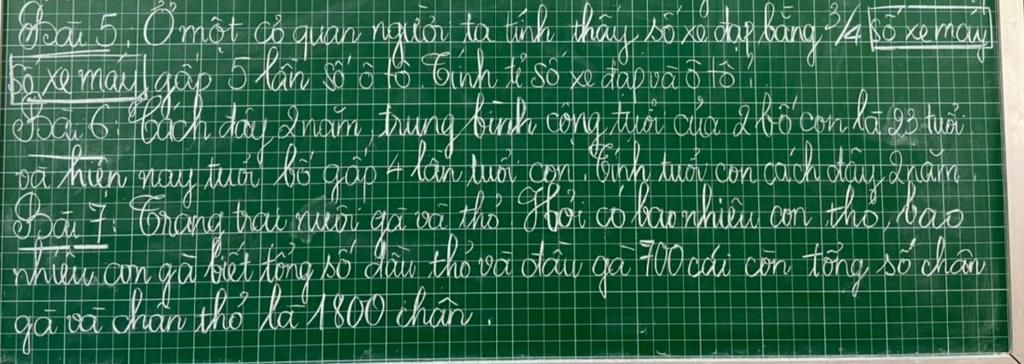 Bài 5: Ở một cơ quan người ta tính thấy số xe đạp bằng 3/4 số xe máy
số xe máy gấp 5 lần số ô tô. Tính tỉ số xe đạp và ô tô!
Bài 6: Cách đây 2 năm, trung bình cộng tuổi của 2 bố con là 23 tuổi
và hiện nay tuổi bố gấp 4 lần tuổi con. Tính tuổi con cách đây 2 năm
Bài 7: Trang trại nuôi gà và thỏ Hỏi có bao nhiêu con thỏ, bao
nhiêu con gà biết tổng số đầu thỏ và đầu gà 700 cái còn tổng số chân
gà và chân thỏ là 1800 chân.